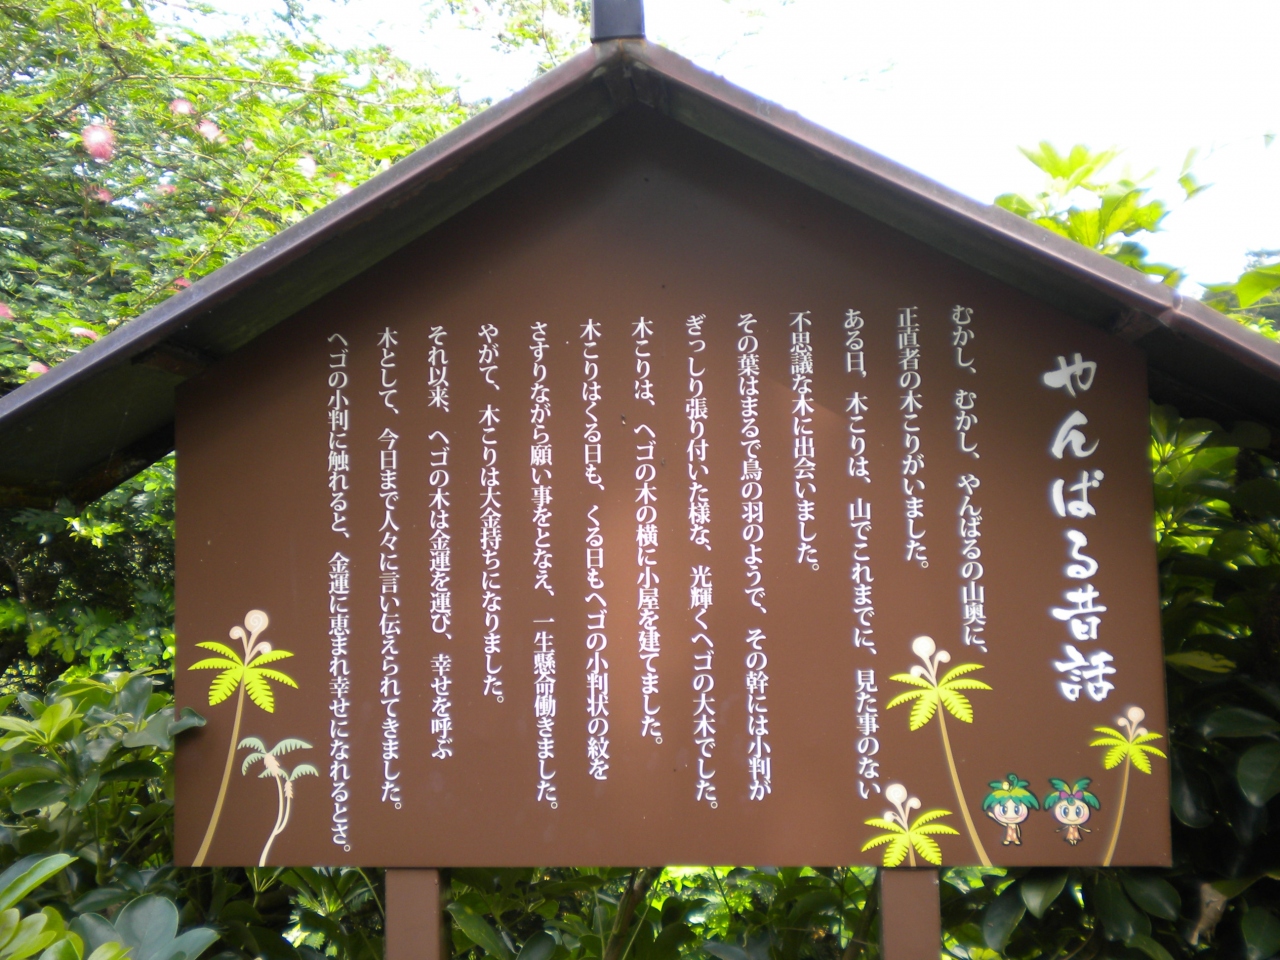 やんばる昔話
むかし、むかし、やんばるの山奥に、
正直者の木こりがいました。
ある日、木こりは、山でこれまでに、見た事のない
不思議な木に出会いました。
その葉はまるで鳥の羽のようで、その幹には小判が
ぎっしり張り付いた様な、光輝くヘゴの大木でした。
木こりは、ヘゴの木の横に小屋を建てました。
木こりはくる日も、くる日もヘゴの小判状の紋を
さすりながら願い事をとなえ、一生懸命働きました。
やがて、木こりは大金持ちになりました。
それ以来、ヘゴの木は金運を運び、幸せを呼ぶ
木として、今日まで人々に言い伝えられてきました。
ヘゴの小判に触れると、金運に恵まれ幸せになれるとさ。